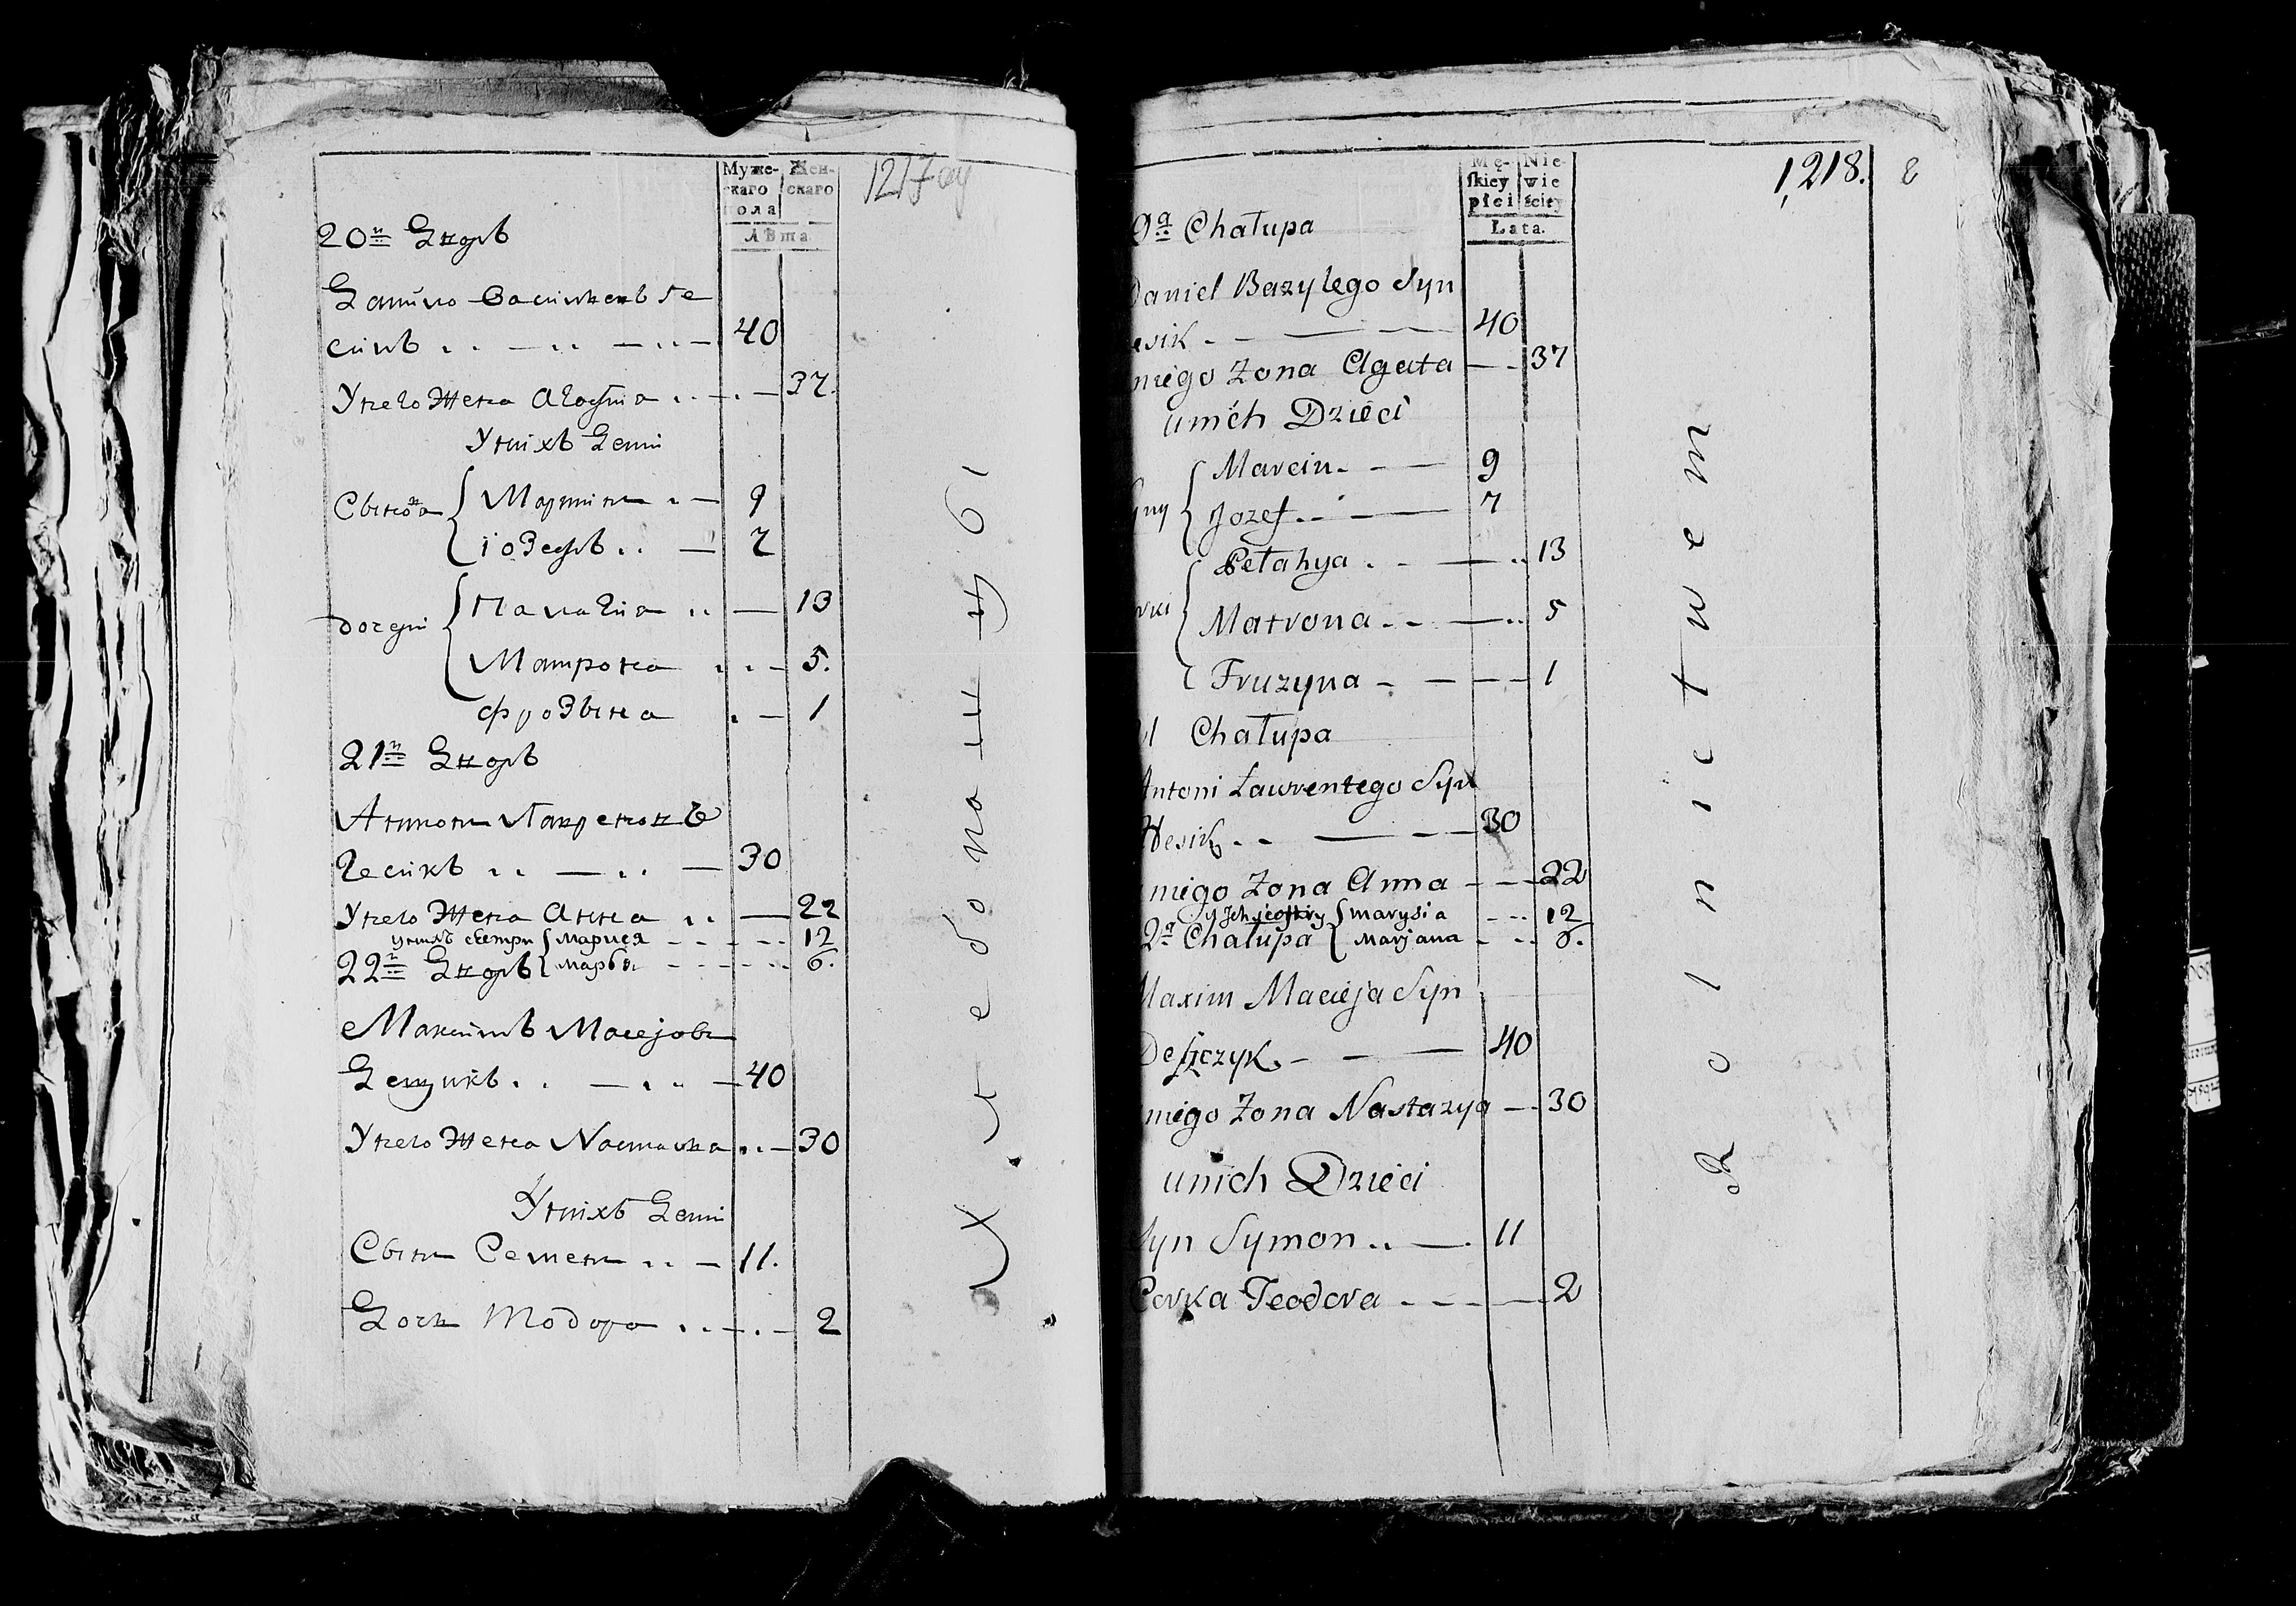 Муже-
скаго
пола
Жен-
скаго
Лѣта
20й Дворъ
Данило Васильевъ Ге
сикъ
40
У него Жена Агафия
37.
У нихъ Дети
Сыновя
Мартин
9
Іозефъ
7
дочери
Палагия
13
Матрона
5.
Фрозына
1
21й Дворъ
Антон Лавреновъ
Гесикъ
30
У него Жена Анна
22
у нихъ сестри
Марися
12
6.
22й Дворъ
Максимъ Мацеjовъ
Дещикъ
40
У него Жена Настазиа
30
У нихъ Дети
Сын Семен
11.
Дочь Тодора
2
1217
Mę-
skiey
płci
Nie-
wie
ściey
Lata.
1,218.
Chałupa
Daniel Bazylego Syn
esik
40
niego Zona Agata
37
unich Dzieci
Marcin
9
Jozef
7
Pełahya
13
Matrona
5
Fruzyna
1
Chałupa
Antoni Lawrentego Syn
Hesik
30
niego Zona Anna
22
Marysia
12
2a Chałupa
Marjana
6.
Maxim Macieja Syn
Deszczyk
40
niego Zona Nastazya
30
unich Dzieci
Syn Symon
11
Corka Teodora
2
Rolnictwem